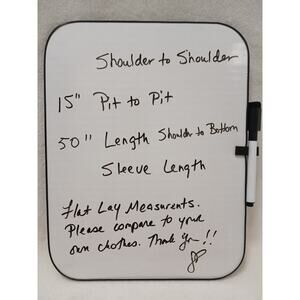 Shoulder to Shoulder
15" Pit to Pit
50" Length Shoulder to Bottom
Sleeve Length
Flat Lay Measurents.
Please compare to your
own clothes. Thank you!!